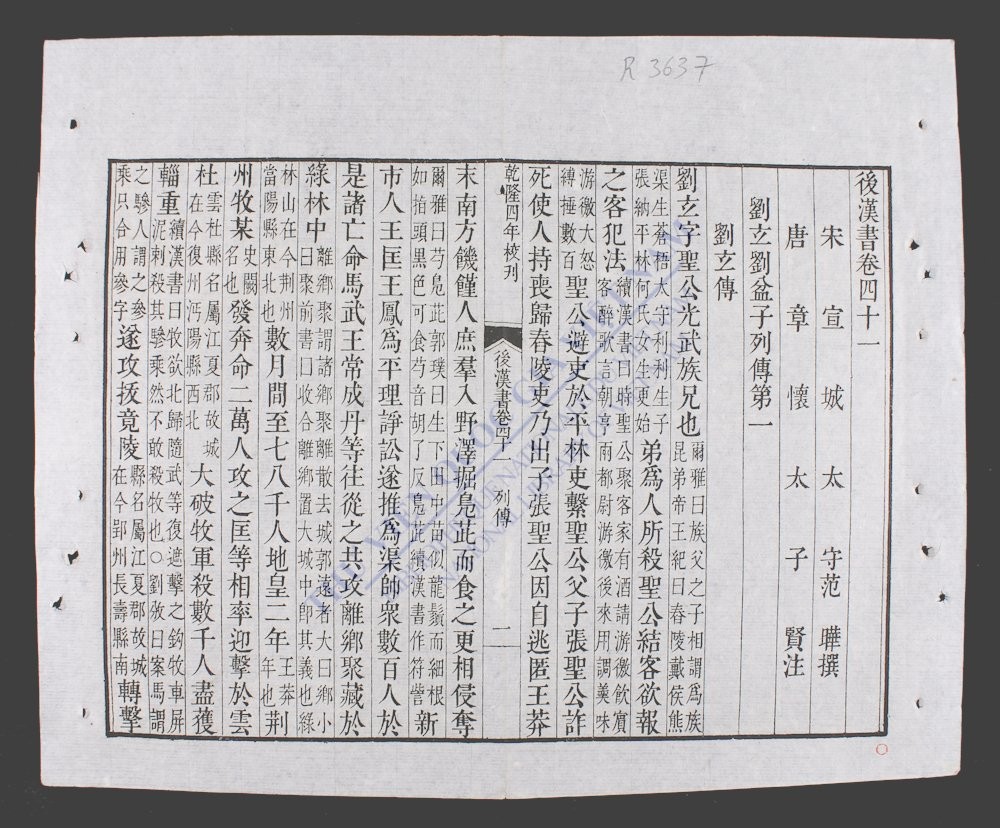 R 3637
後漢書卷四十一
宋宣城太守范曄撰
唐章懷太子賢注
劉玄劉盆子列傳第一
劉玄傳
劉玄字聖公光武族兄也爾雅曰族父之子相謂爲族昆弟帝王紀曰舂陵戴侯熊
渠生蒼梧大守利利生子張納平林何氏女生更始弟爲人所殺聖公結客欲報
之客犯法續漢書曰時聖公聚客家有酒請游徼飲賓客醉歌言朝亨兩都尉游徼後來用調羹味
游徼大怒縛捶數百聖公避吏於平林吏繫聖公父子張聖公許
死使人持喪歸舂陵吏乃出子張聖公因自逃匿王莽
乾隆四年校刊 後漢書卷四十一 列傳 一
末南方饑饉人庶羣入野澤掘鳧茈而食之更相侵奪
爾雅曰芍鳧茈郭璞曰生下田中苗似龍鬚而細根如指頭黑色可食芍音胡了反鳧茈續漢書作符訾新
市人王匡王鳳爲平理諍訟遂推爲渠帥衆數百人於
是諸亡命馬武王常成丹等往從之共攻離鄉聚藏於
綠林中離鄉聚謂諸鄉聚離散去城郭遠者大曰鄉小曰聚前書曰收合離鄉置大城中卽其義也綠
林山在今荆州當陽縣東北也數月間至七八千人地皇二年王莽年也荆
州牧某史闕名也發奔命二萬人攻之匡等相率迎擊於雲
杜雲杜縣名屬江夏郡故城在今復州沔陽縣西北大破牧軍殺數千人盡獲
輜重續漢書曰牧欲北歸隨武等復遮擊之鉤牧車屏泥刺殺其驂乘然不敢殺牧也○劉攽曰案馬謂
之驂人謂之參乘只合用參字遂攻拔竟陵縣名屬江夏郡故城在今郢州長壽縣南轉擊